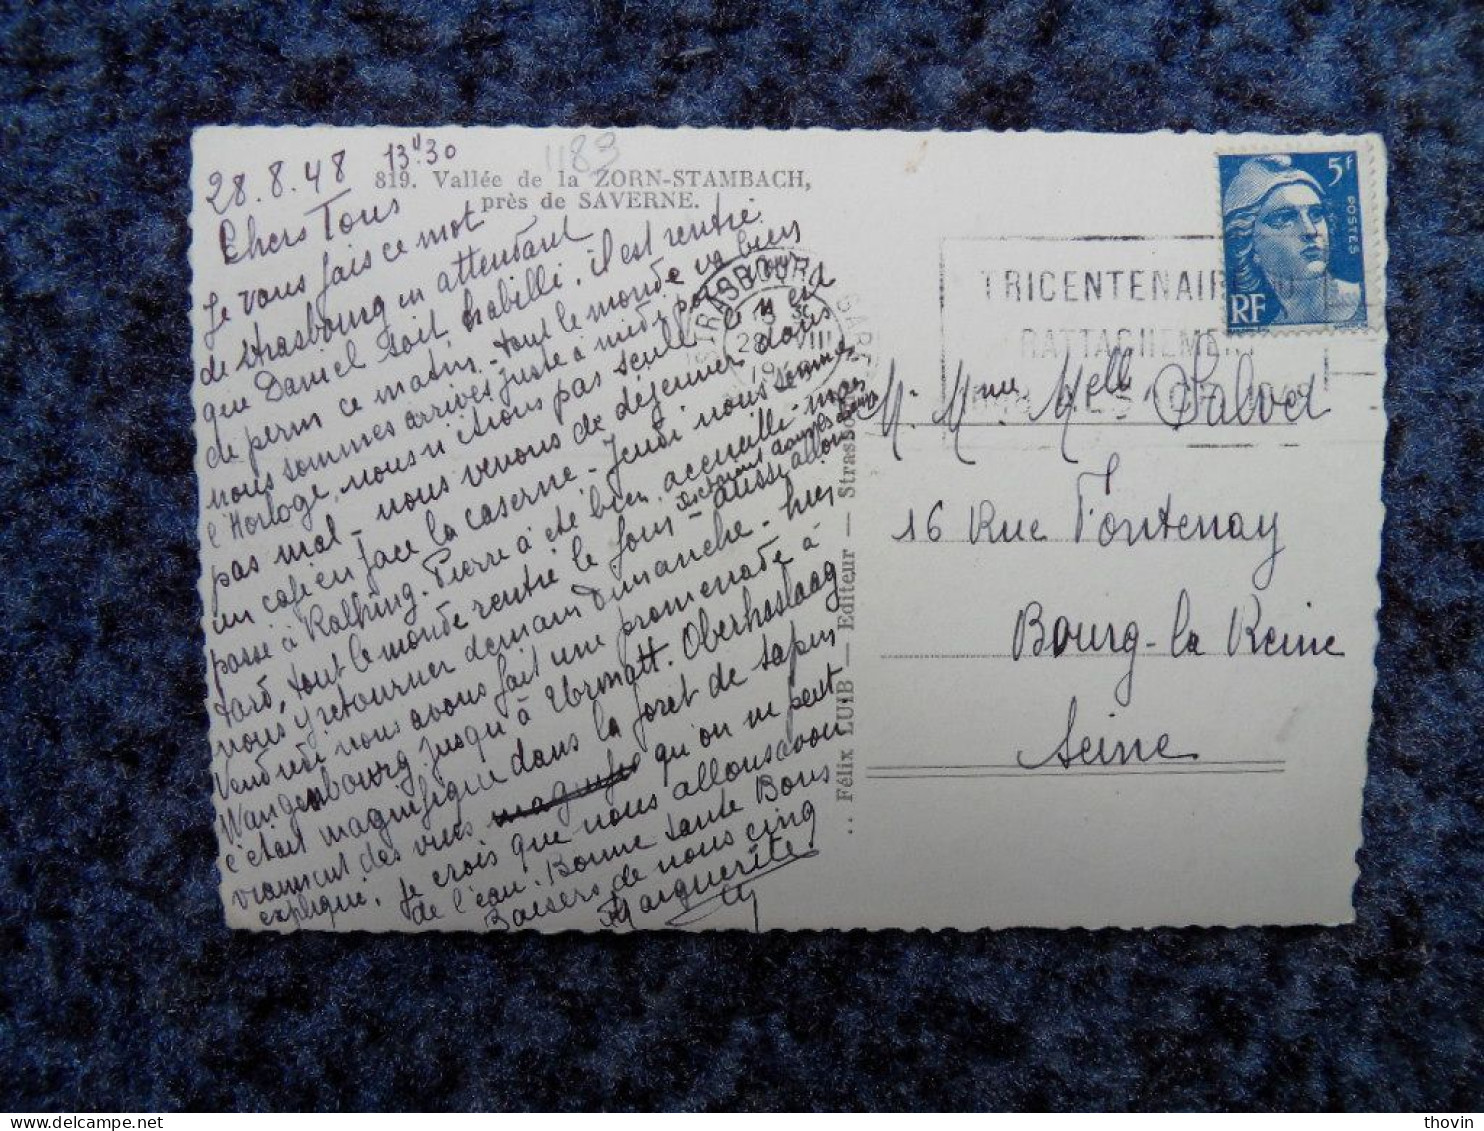 28.8.48 13h30
1183
819. Vallée de la ZORN-STAMBACH,
près de SAVERNE.
Chers Tous
Je vous fais ce mot
de Strasbourg en attendant
que Daniel soit habillé, il est rentré
de perm ce matin. tout le monde va bien
nous sommes arrivés juste à midi pour voir
l'Horloge, nous n'étions pas seull il y en est
pas mal - nous venons de déjeuner dans
un café en face la caserne - Jeudi nous sommes
passé à Ralhing. Pierre a été bien accueilli mais
tard, tout le monde rentré le four
nous y retourner demain Dimanche - hier
aussi allons
Vendredi nous avons fait une promenade à
Wangenbourg jusqu'à Urmatt. Oberhaslaag
c'était magnifique dans la foret de sapin
vraiment des vues qu'on ne peut
expliqué. Je crois que nous allons avoir
de l'eau. Bonne santé Bons
Baisers de nous cinq
Marguerite
.. Félix LUIB — Editeur — Strasbourg
STRASBOURG GARE
28 VIII
TRICENTENAIRE DU
RATTACHEMENT
5f
POSTES
RF
M. Mme Mell Salvat
16 Rue Fontenay
Bourg-la Reine
Seine
thovin